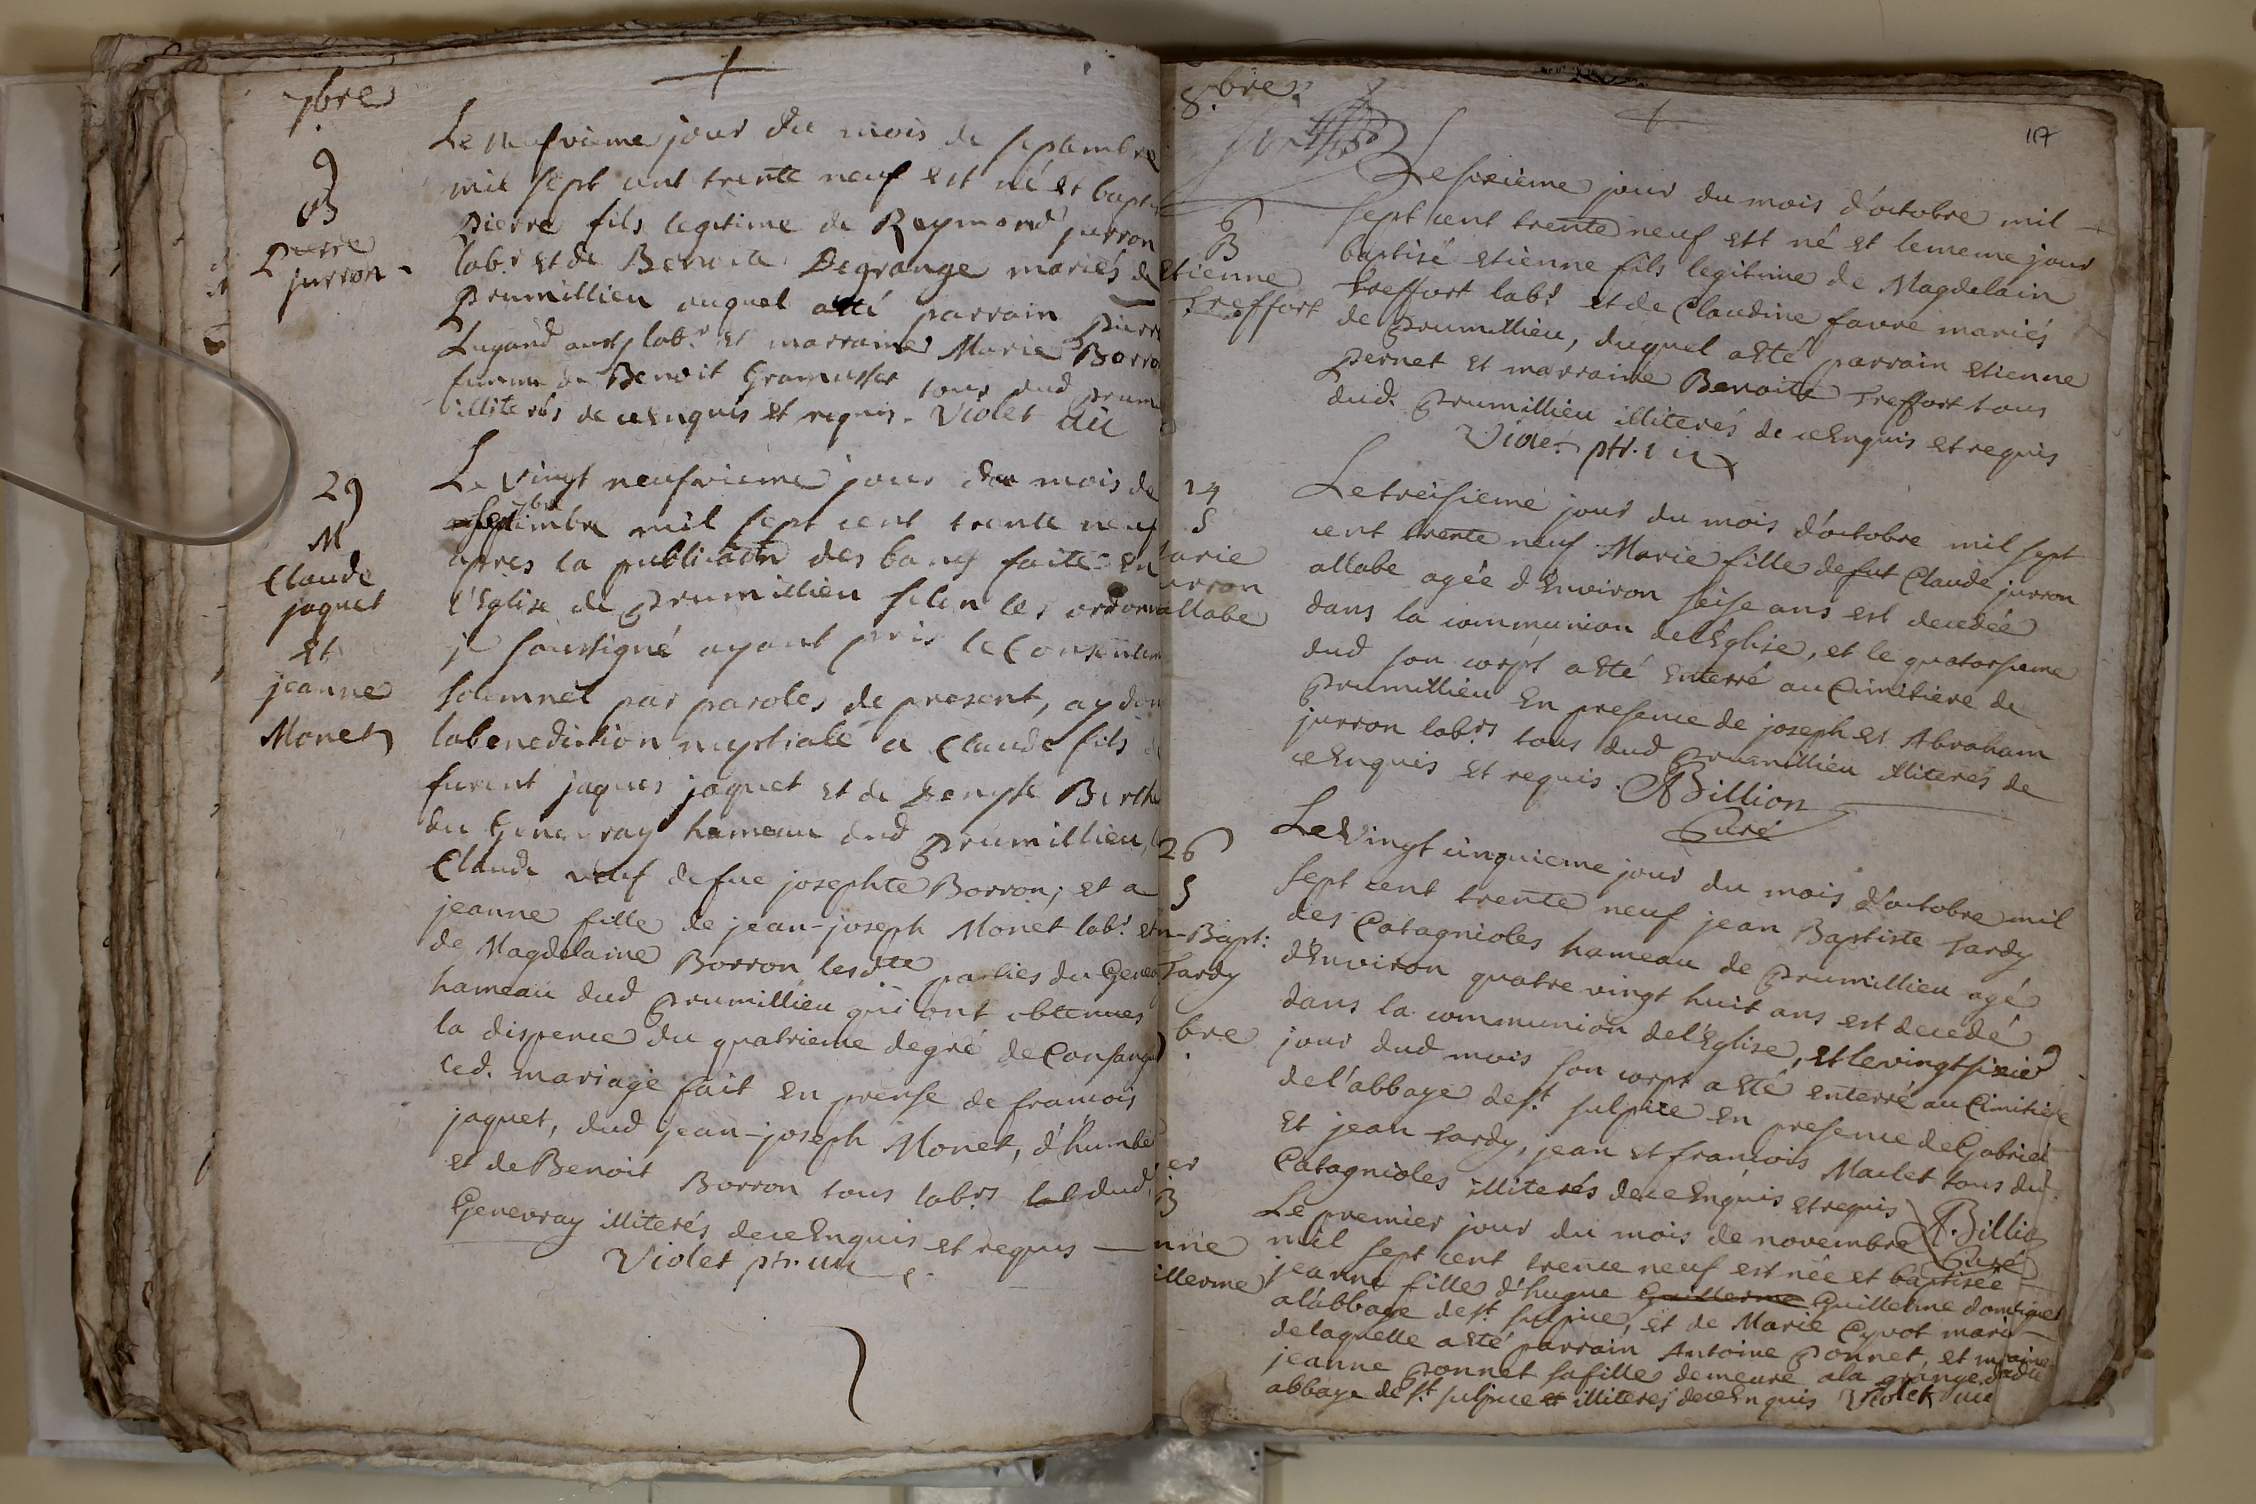 7bre
9
B
Pierre
jurron
Le neufvieme jour du mois de septembre
mil sept cent trente neuf est né et bapti
Pierre fils legitime de Reymond jurron
labr. et de Benoite Degrange mariés de
Prumillieu auquel a été parrain Pierre
Lugand aussy labr. et marraine Marie Borro
femme de Benoit Gramusset tous dud prum
illiterés de ce enquis et requis. Violet
29
M
Claude
jaquet
et
jeanne
Monet
Le vingt neufvieme jour du mois de
7bre
septembre mil sept cent trente neuf
apres la publication des bans faite en
l'Eglise de Prumillieu selon les ordonn
je soussigné ayant pris le Consentem
solemnel par paroles de present, ay don
la benediction nuptiale a Claude fils d
furent jaques jaquet et de Denyse Berthe
du Genevray hameau dud Prumillieu, le
Claude veuf de fue josephte Borron; et a
jeanne fille de jean-joseph Monet labr. et
de Magdelaine Borron lesdtte parties du Genev
hameau dud Prumillieu qui ont obtenues
la dispence du quatrieme degré de Consang
led. mariage fait en prense de francois
jaquet, dud jean-joseph Monet, d'humbe
et de Benoit Borron tous labrs lab dud
Genevray illiterés de ce Enquis et requis
Violet ptr. un
8.bre
117
6
B
Etienne
Treffort
Le sixieme jour du mois d'octobre mil
sept cent trente neuf est né et le meme jour
baptisé etienne fils legitime de Magdelain
Treffort labr. et de Claudine favre mariés
de Prumillieu, duquel a été parrain etienne
Pernet et marraine Benoite Treffort tous
dud. Prumillieu illiterés de ce Enquis et requis
Violet ptr.
14
S
Marie
jurron
allabe
Le treisieme jour du mois d'octobre mil sept
cent trente neuf Marie fille de fut Claude jurron
allabe agée d'Environ seise ans est decedée
dans la communion de l'Eglise, et le quatorsieme
dud son corps a été Enterré au Cimitiere de
Prumillieu En presence de joseph et Abraham
jurron labrs tous dud Prumillieu illiterés de
ce Enquis et requis. ABillion
Curé
26
S
n-Bapt:
Tardy
Le vingt cinquieme jour du mois d'octobre mil
sept cent trente neuf jean Baptiste Tardy
des Catagnioles hameau de Prumillieu agé
d'Environ quatre vingt huit ans est decedé
dans la communion de l'Eglise, et le vingt sixie
jour dud mois son corps a été enterré au Cimitiere
de l'abbaye de st. sulpice en presence de Gabriel
et jean Tardy, jean et francois Maclet tous du
Catagnioles illiterés de ce Enquis et requis
A.Billio
Curé
bre
er
B
nne
illerme
Le premier jour du mois de novembre
mil sept cent trente neuf est née et baptisée
jeanne fille d'hugue Guillerme Guillerme domtiques
a l'abbaye de st. sulpice, et de Marie Cyvot marié
de laquelle a été parrain Antoine Ponnet, et mraine
jeanne Ponnet sa fille demeure a la grange dudit
abbaye de st. sulpice et illiterés de ce Enquis Violet